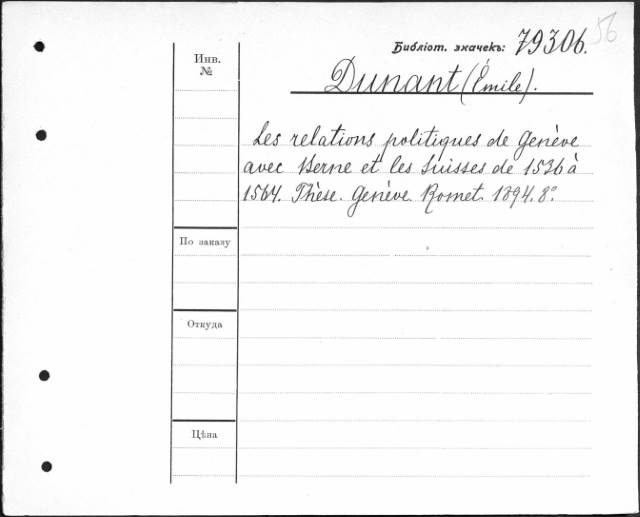 56
Библіот. значекъ: 79306.
Инв.
№
Dunant (Émile).
Les relations politiques de Genève
avec Berne et les Suisses de 1536 à
1564. Thèse. Genève. Romet. 1894. 8°.
По заказу
Откуда
Цѣна